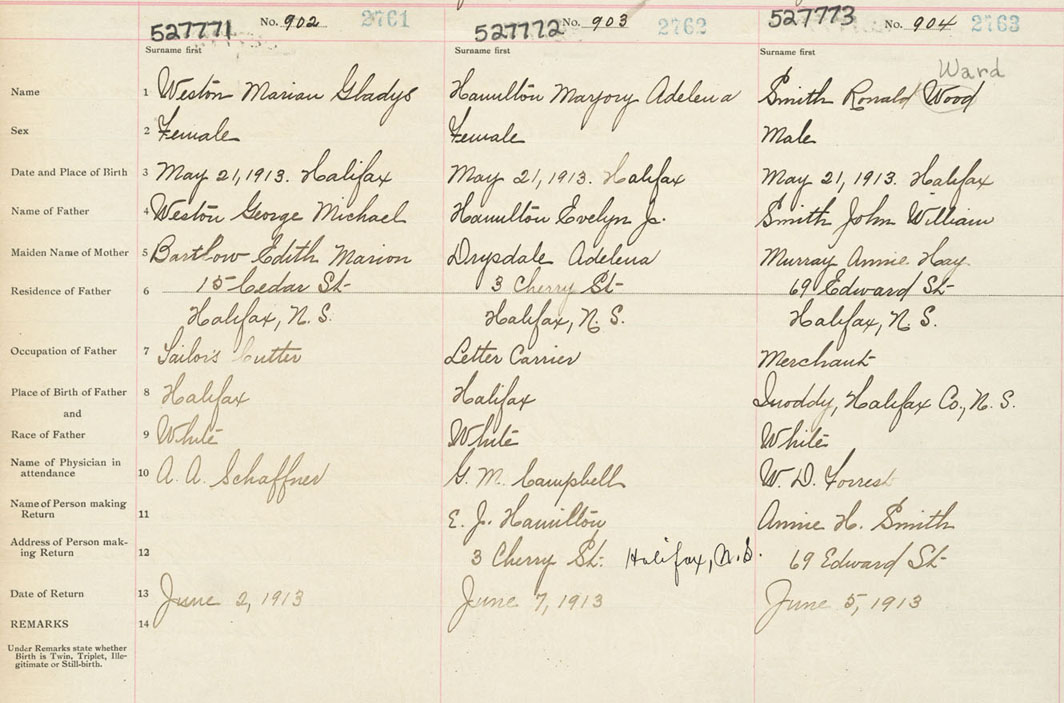 527771 No. 902 2761 527772 No. 903 2762 527773 No. 904 2763
Surname first Surname first Surname first
Ward
Name 1 Weston Marian Gladys Hamilton Marjory Adelena Smith Ronald Wood
Sex 2 Female Female Male
Date and Place of Birth 3 May 21, 1913. Halifax May 21, 1913. Halifax May 21, 1913. Halifax
Name of Father 4 Weston George Michael Hamilton Evelyn J. Smith John William
Maiden Name of Mother 5 Bartlow Edith Marion Drysdale Adelena Murray Annie Hay
Residence of Father 6 15 Cedar St 3 Cherry St 69 Edward St
Halifax, N.S. Halifax, N.S. Halifax, N.S.
Occupation of Father 7 Sailor's Cutter Letter Carrier Merchant
Place of Birth of Father 8 Halifax Halifax Halifax Co., N.S.
and
Race of Father 9 White White White
Name of Physician in
attendance 10 A. A. Schaffner G. M. Campbell W. D. Forrest
Name of Person making
Return 11 E. J. Hamilton Annie H. Smith
Address of Person mak-
ing Return 12 3 Cherry St. Halifax, N.S. 69 Edward St
Date of Return 13 June 2, 1913 June 7, 1913 June 5, 1913
REMARKS 14
Under Remarks state whether
Birth is Twin, Triplet, Ille-
gitimate or Still-birth.